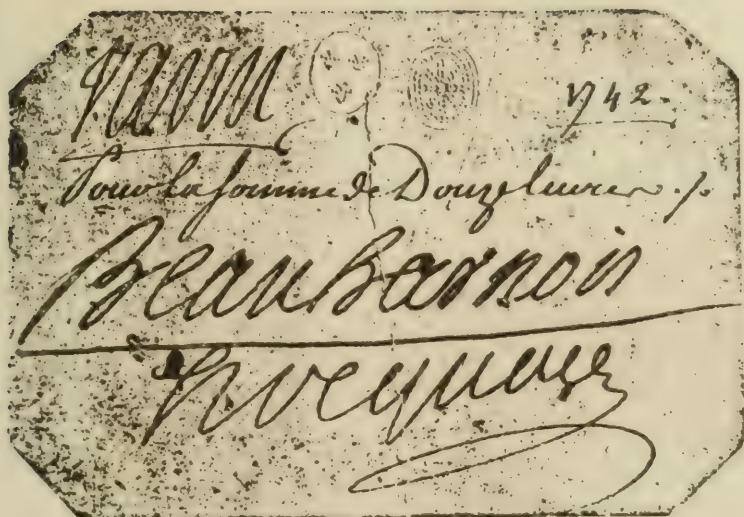 Varin 1742
Pour la somme de Douze livres ./.
Beauharnois
Hocquart